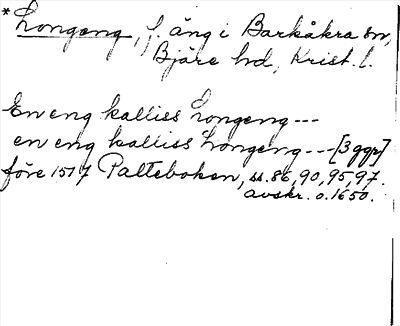 * Longeng, f. äng i Barkåkra sn,
Bjäre hd, Krist. l.
En eng kalliss Longeng ---
en eng kalliss Longeng --- [3 ggr]
före 1517 Palteboken, ss. 86, 90, 95, 97.
avskr. o. 1650.